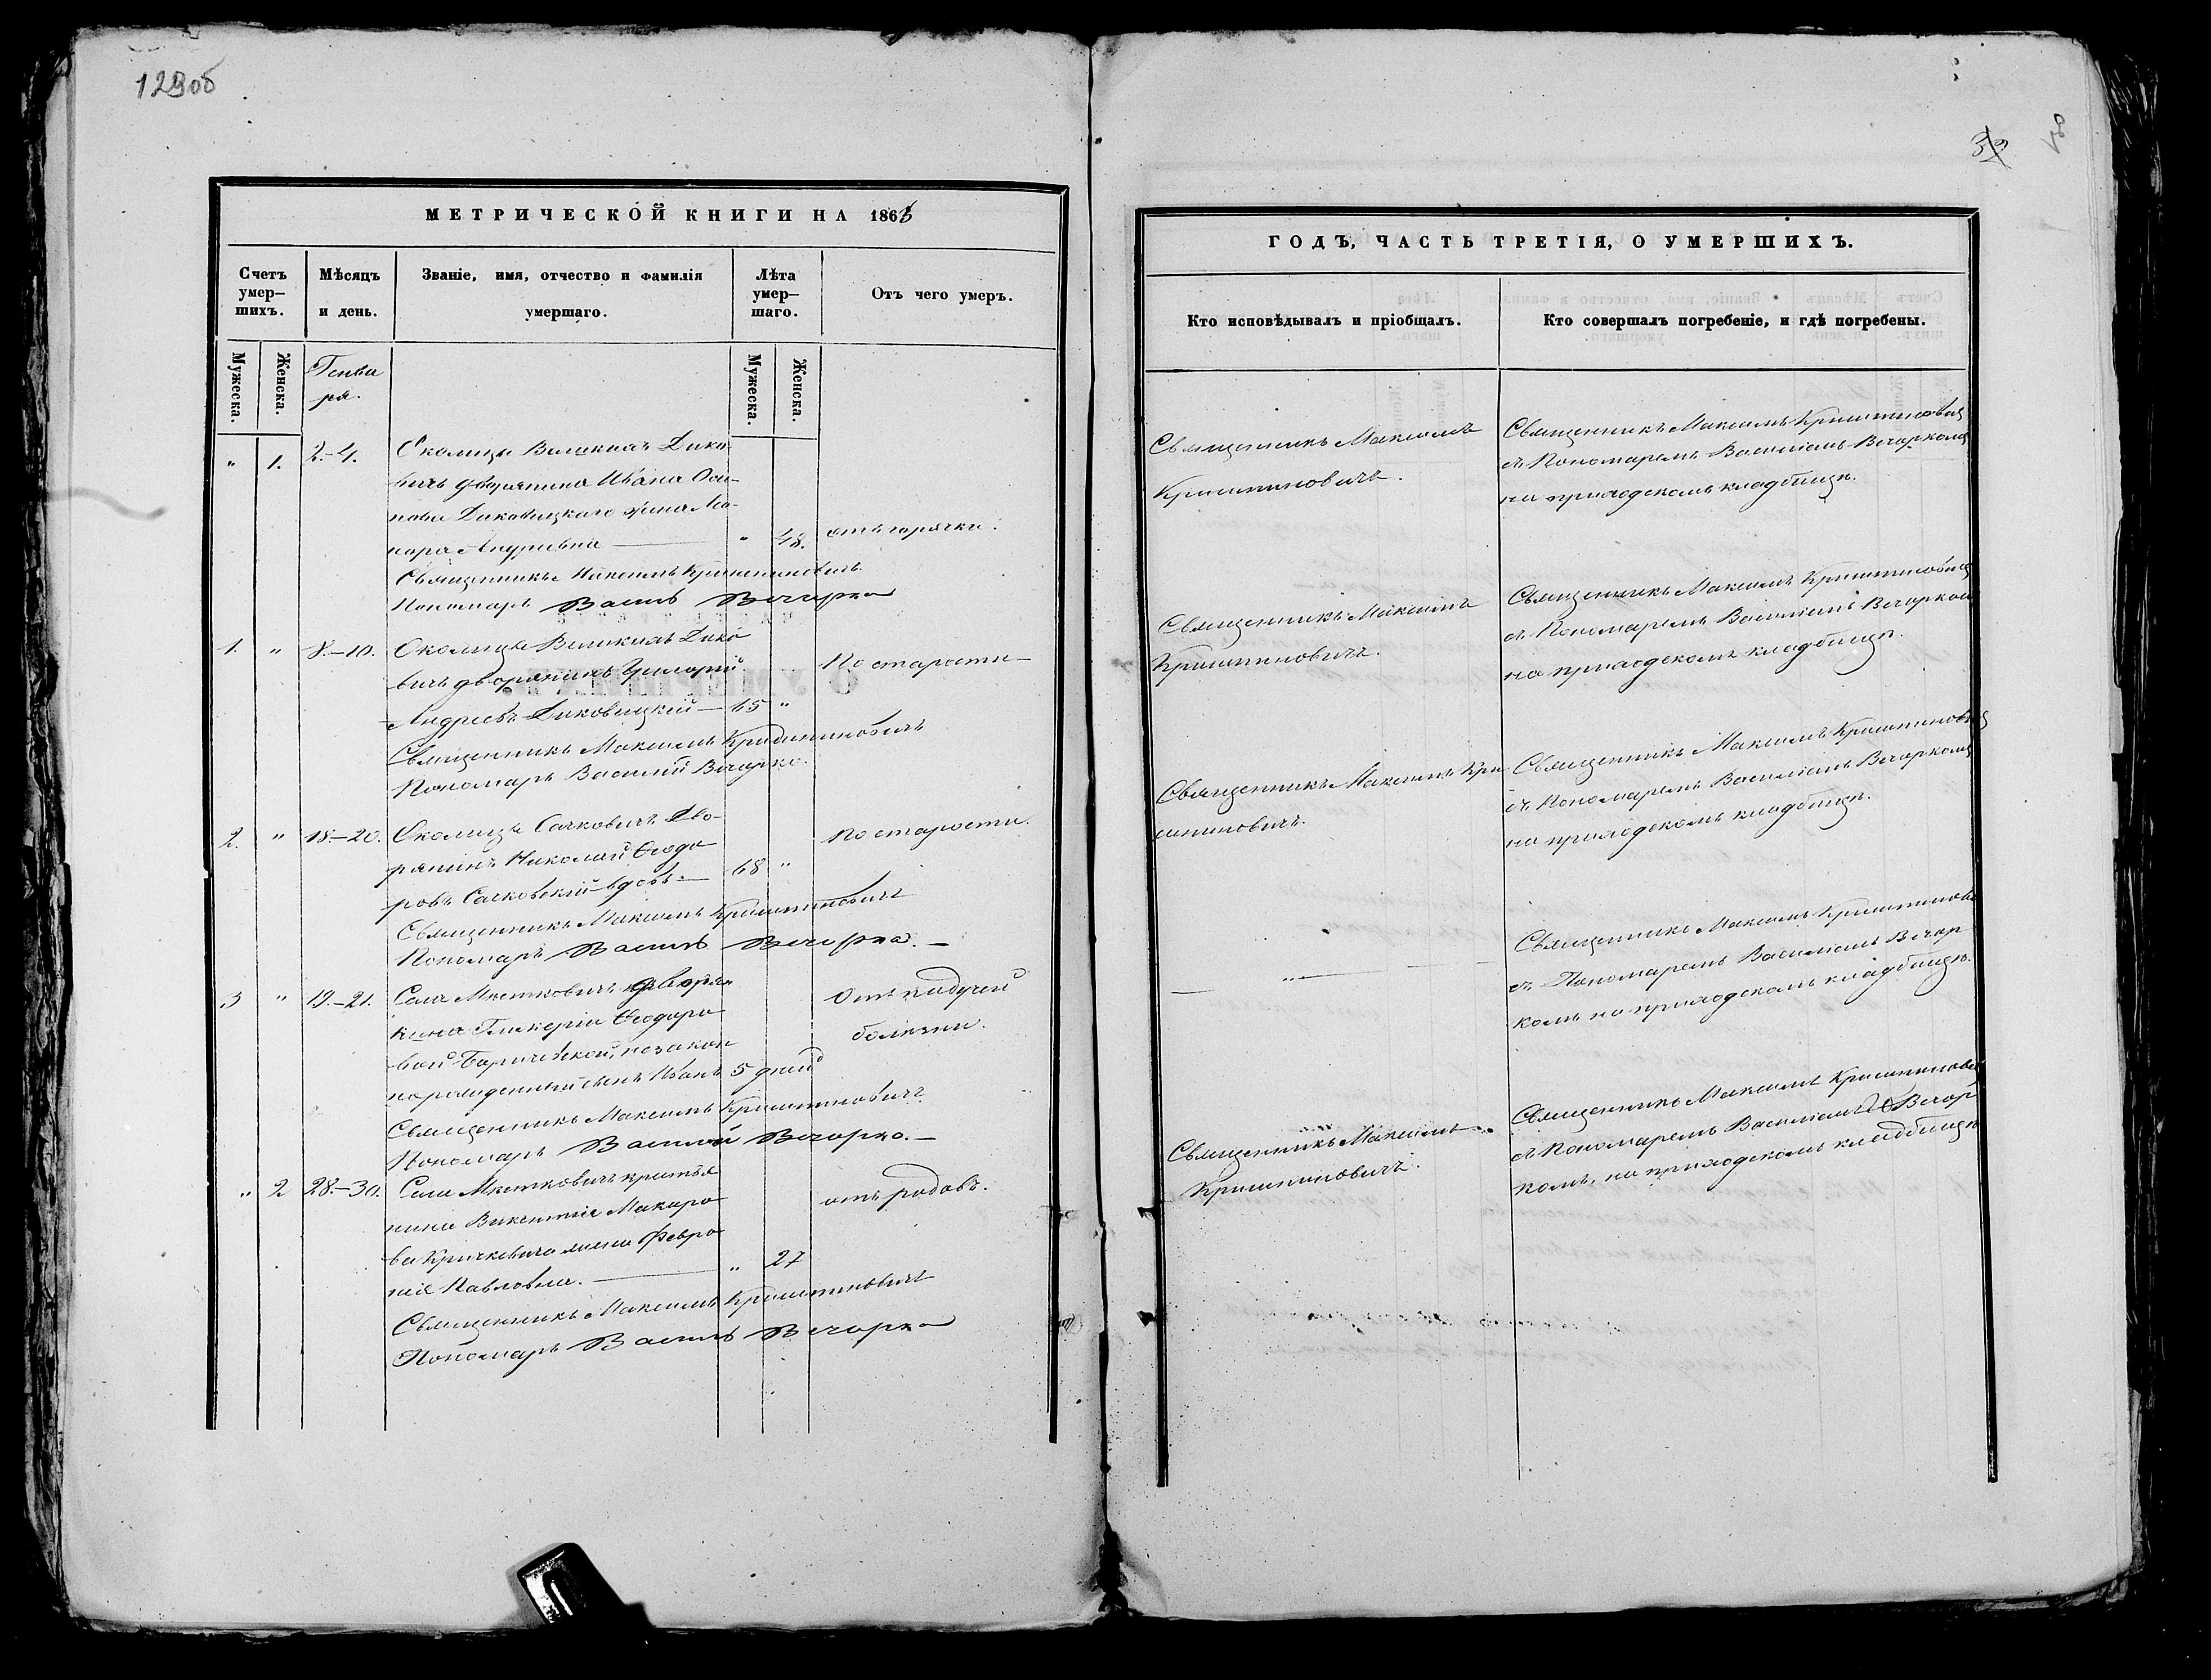 129об
МЕТРИЧЕСКОЙ КНИГИ НА 1863
Счетъ умер-шихъ.
Мѣсяцъ и день.
Званіе, имя, отчество и фамилія умершаго.
Лѣта умер-шаго.
Отъ чего умеръ.
Мужеска.
Женска.
Генва
ря.
Мужеска.
Женска.
" 1. 2.-4. Околицы Великихъ Дико
вичъ дворянина Ивана Оси-
пова Диковицкаго жена
Андреевна — " 48. отъ горячки.
Священникъ Максимъ Криштиновичъ
Пономарь Василь Вечорко
1. " 8.-10. Околицы Великихъ Дико
вичъ дворянинъ Григорій По старости
Андреевъ Диковицкій — 65 "
Священникъ Максимъ Криштиновичъ
Пономарь Василій Вечорко.
2. " 18.-20. Околицы Сачковичъ Дво-
рянинъ Николай Ѳеодо По старости.
ровъ Сачковскій вдовъ — 68 "
Священникъ Максимъ Криштиновичъ
Пономарь Василь Вечорко. —
3 " 19.-21. Села Мисятковичъ дворян Отъ падучей
Гликеріи Ѳеодоро болѣзни.
вой незакон
норожденный сынъ Иванъ 5 дней
Священникъ Максимъ Криштиновичъ
Пономарь Василій Вечорко. —
" 2 28.-30. Села крестья
нина Викентія Макаро отъ родовъ.
ва Кричкевича жена Февро
нія Павловна. — " 27
Священникъ Максимъ Криштиновичъ
Пономарь Василь Вечорко
39
ГОДЪ, ЧАСТЬ ТРЕТІЯ, О УМЕРШИХЪ.
Кто исповѣдывалъ и пріобщалъ.
Кто совершалъ погребеніе, и гдѣ погребены.
Священникъ Максимъ
Криштиновичъ.
Священникъ Максимъ Криштиновичъ
съ Пономаремъ Василіемъ Вечоркомъ
на приходскомъ кладбищѣ.
Священникъ Максимъ
Криштиновичъ.
Священникъ Максимъ Криштиновичъ
съ Пономаремъ Василіемъ Вечоркомъ
на приходскомъ кладбищѣ.
Священникъ Максимъ Кри
штиновичъ.
Священникъ Максимъ Криштиновичъ
съ Пономаремъ Василіемъ Вечоркомъ
на приходскомъ кладбищѣ.
— " —
Священникъ Максимъ Криштинович
съ Пономаремъ Василіемъ Вечор
комъ на приходскомъ кладбищѣ.
Священникъ Максимъ
Криштиновичъ.
Священникъ Максимъ Криштинович
съ Пономаремъ Василіемъ Вечор
комъ, на приходскомъ кладбищѣ